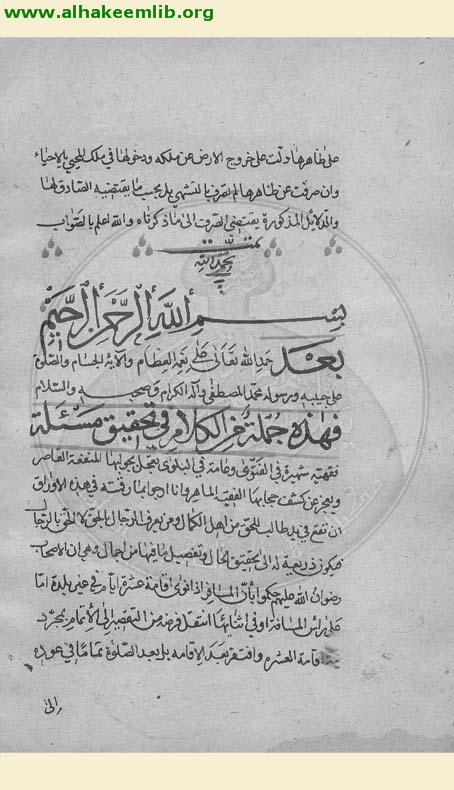 www.alhakeemlib.org
على ظاهرها دلت على خروج الارض عن ملكه ودخولها في ملك المحيي بالاحياء
وان صرفت عن ظاهرها لم تصرف بالتشهي بل بحسب ما يقتضيه الصادق لها
والدلايل المذكورة يقتضي الصرف الى ما ذكرناه والله اعلم بالصواب
تمت
بحمد الله
بسم الله الرحمن الرحيم
بعد حمد الله تعالى على نعمه العظام وآلائه الجسام والصلوة
على حبيبه ورسوله محمد المصطفى وآله الكرام وصحبه والسلام
فهذه جملة من الكلام في تحقيق مسئلة
فقهية شهيرة في الفتوى وعامة في البلوى بجوابها المتفقه القاصر
ويعجز عن كشف حجابها الفقيه الماهر وانا ارجو بما رقمته في هذه الاوراق
ان تقع في يد طالب للحق من اهل الكمال ومن يعرف الرجال بالحق لا الحق بالرجال
فيكون ذريعة له الى تحقيق الحال وتفصيل ما فيها من اجمال وهي ان الاصحاب
رضوان الله عليهم حكموا بأن المسافر اذا نوى اقامة عشرة ايام في غير بلده اما
على راس المسافة او في اثنائها انتقل فرضه من التقصير الى الاتمام بمجرد
اقامة العشرة وافتقر بعد الاقامة بل بعد الصلوة تماما في عوده
الى